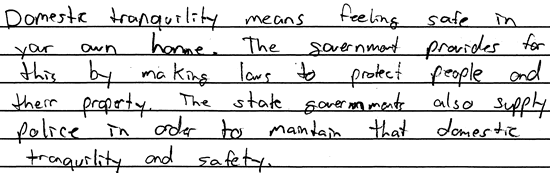 Domestic tranquility means feeling safe in
your own home. The government provides for
this by making laws to protect people and
their property. The state governments also supply
police in order to maintain that domestic
tranquility and safety.